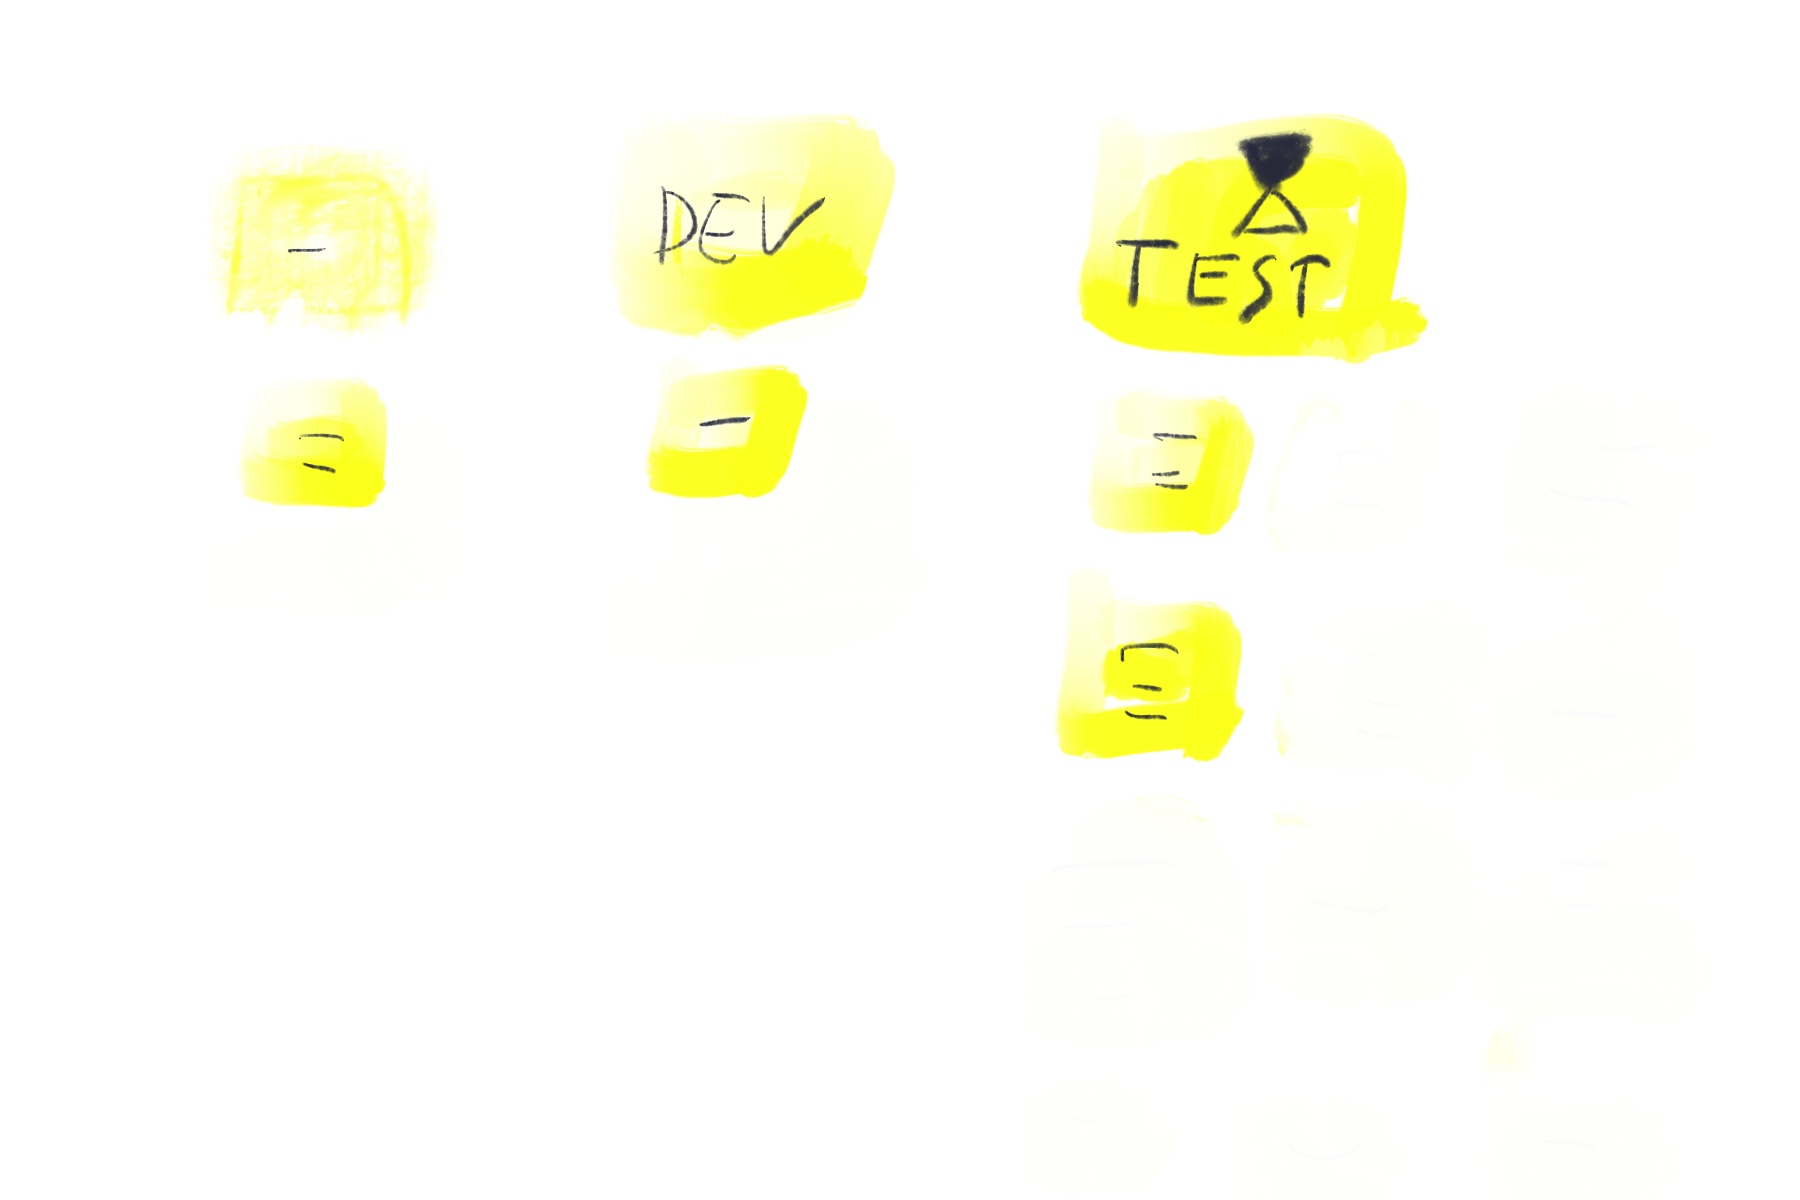 DEV
TEST